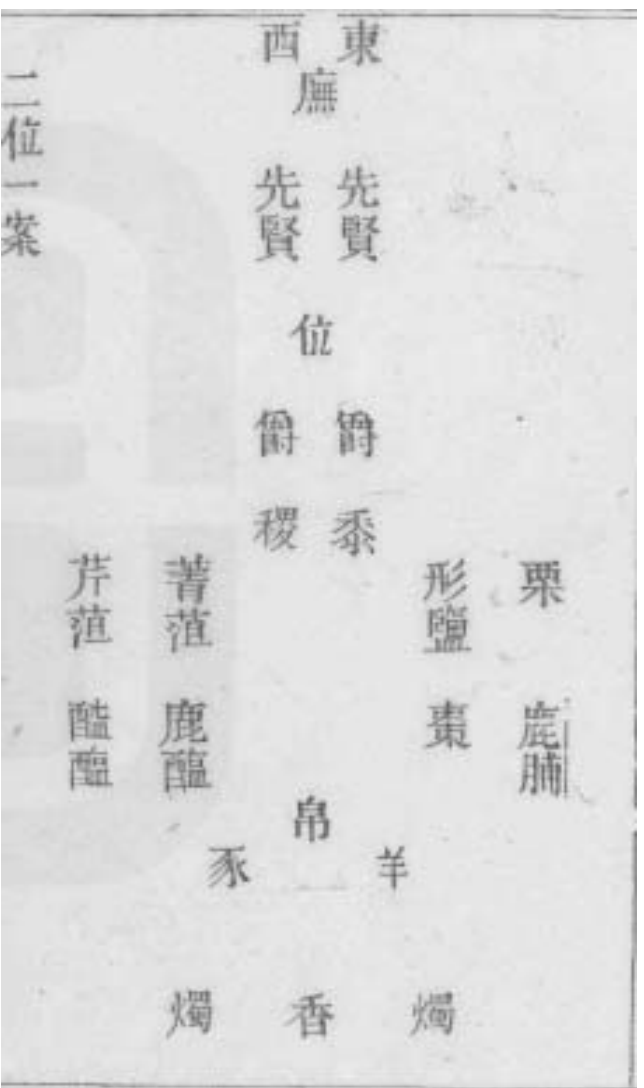 東西
廡
先賢
先賢
位
爵
爵
黍
稷
栗
形鹽
菁菹
芹菹
鹿脯
棗
鹿醢
醓醢
帛
羊
豕
燭
香
燭
二位一案